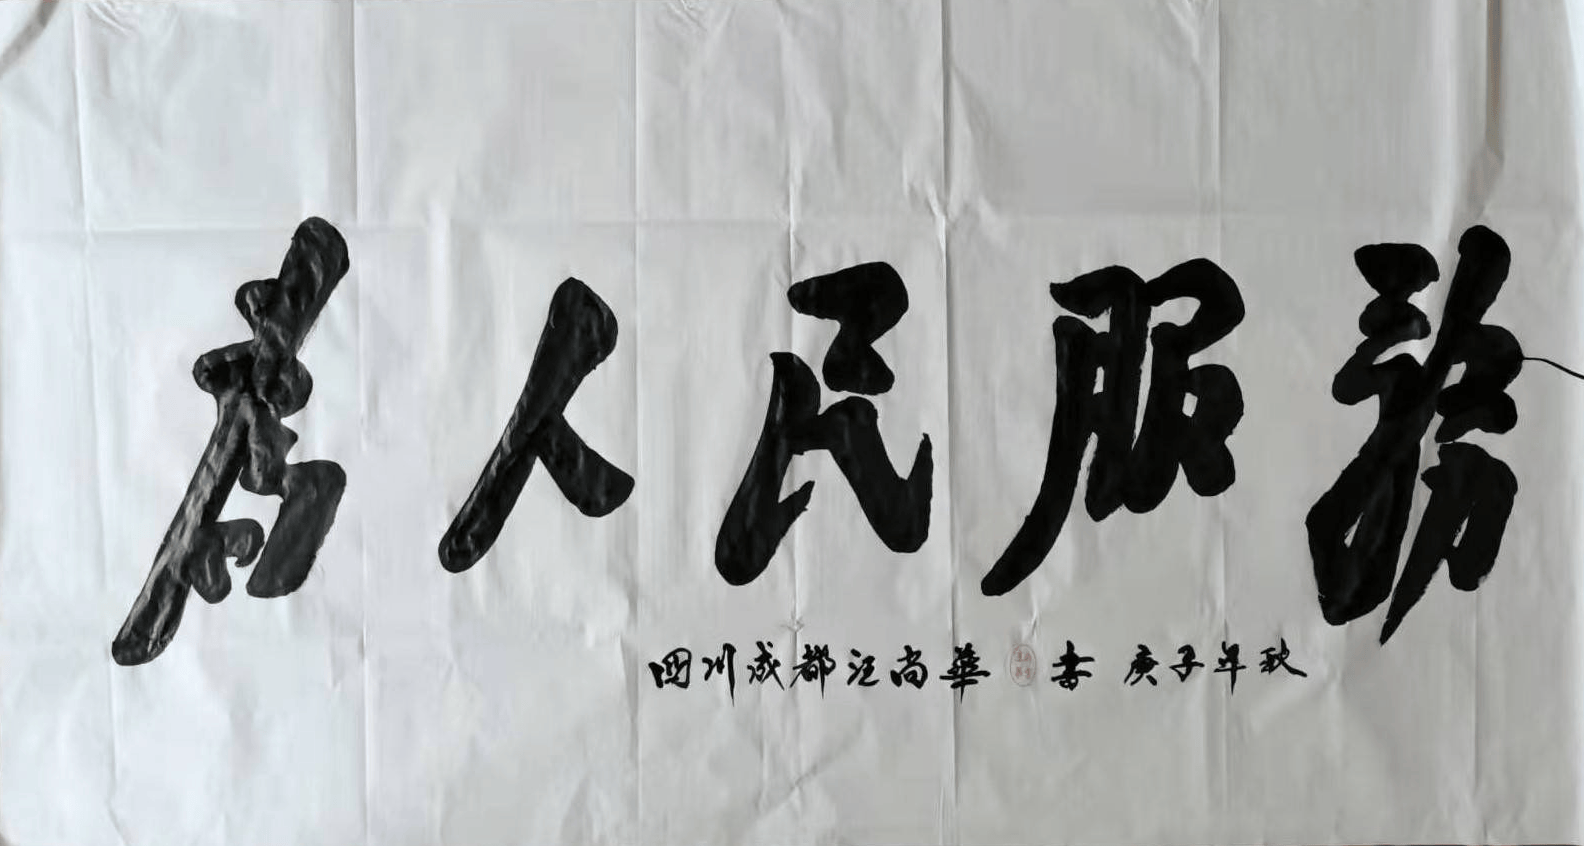 為人民服務
四川成都汪尚華書 庚子年秋